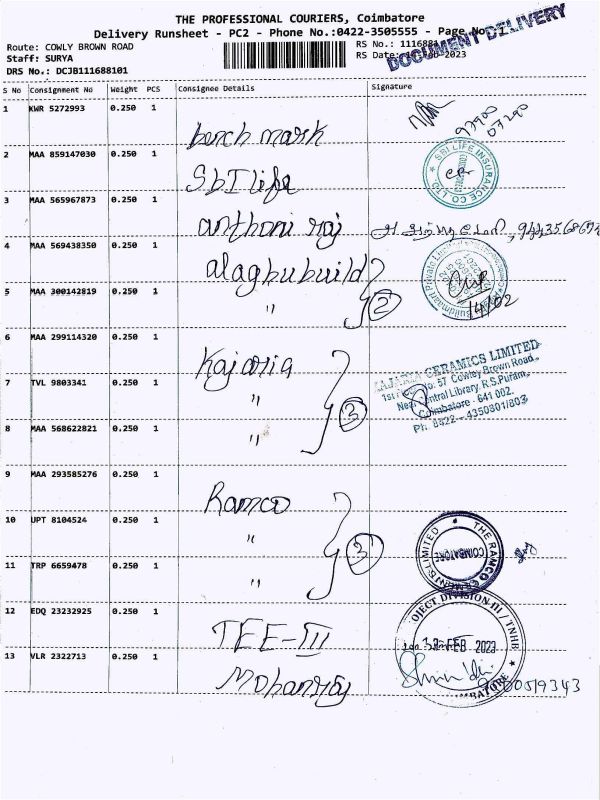 THE PROFESSIONAL COURIERS, Coimbatore
Delivery Runsheet - PC2 - Phone No.:0422-3505555 - Page No.:
DOCUMENT DELIVERY
Route: COWLY BROWN ROAD
RS No.: 1116881
Staff: SURYA
RS Date: 2023
DRS No.: DCJB111688101
S No Consignment No Weight PCS Consignee Details Signature
1 KWR 5272993 0.250 1 bench mark
2 MAA 859147030 0.250 1 SbI life
SBI LIFE INSURANCE CO LTD
3 MAA 565967873 0.250 1 anthoni raj
4 MAA 569438350 0.250 1 alaghubuild
Buildmaart Private Limited
14/02
5 MAA 300142819 0.250 1 " 2
6 MAA 299114320 0.250 1 Kajaria
KAJARIA CERAMICS LIMITED
No. 57 Cowley Brown Road,
Near Central Library, R.S.Puram,
Coimbatore - 641 002.
Ph: 0422 - 4350801/803
7 TVL 9803341 0.250 1 " 3
8 MAA 568622821 0.250 1 "
9 MAA 293585276 0.250 1 Ramco
10 UPT 8104524 0.250 1 " 3
THE RAMCO CEMENTS LIMITED
COIMBATORE
11 TRP 6659478 0.250 1 "
12 EDQ 23232925 0.250 1 TEE-III
PROJECT DIVISION-III / TNHB
FEB 2023
COIMBATORE
13 VLR 2322713 0.250 1 Mohanraj